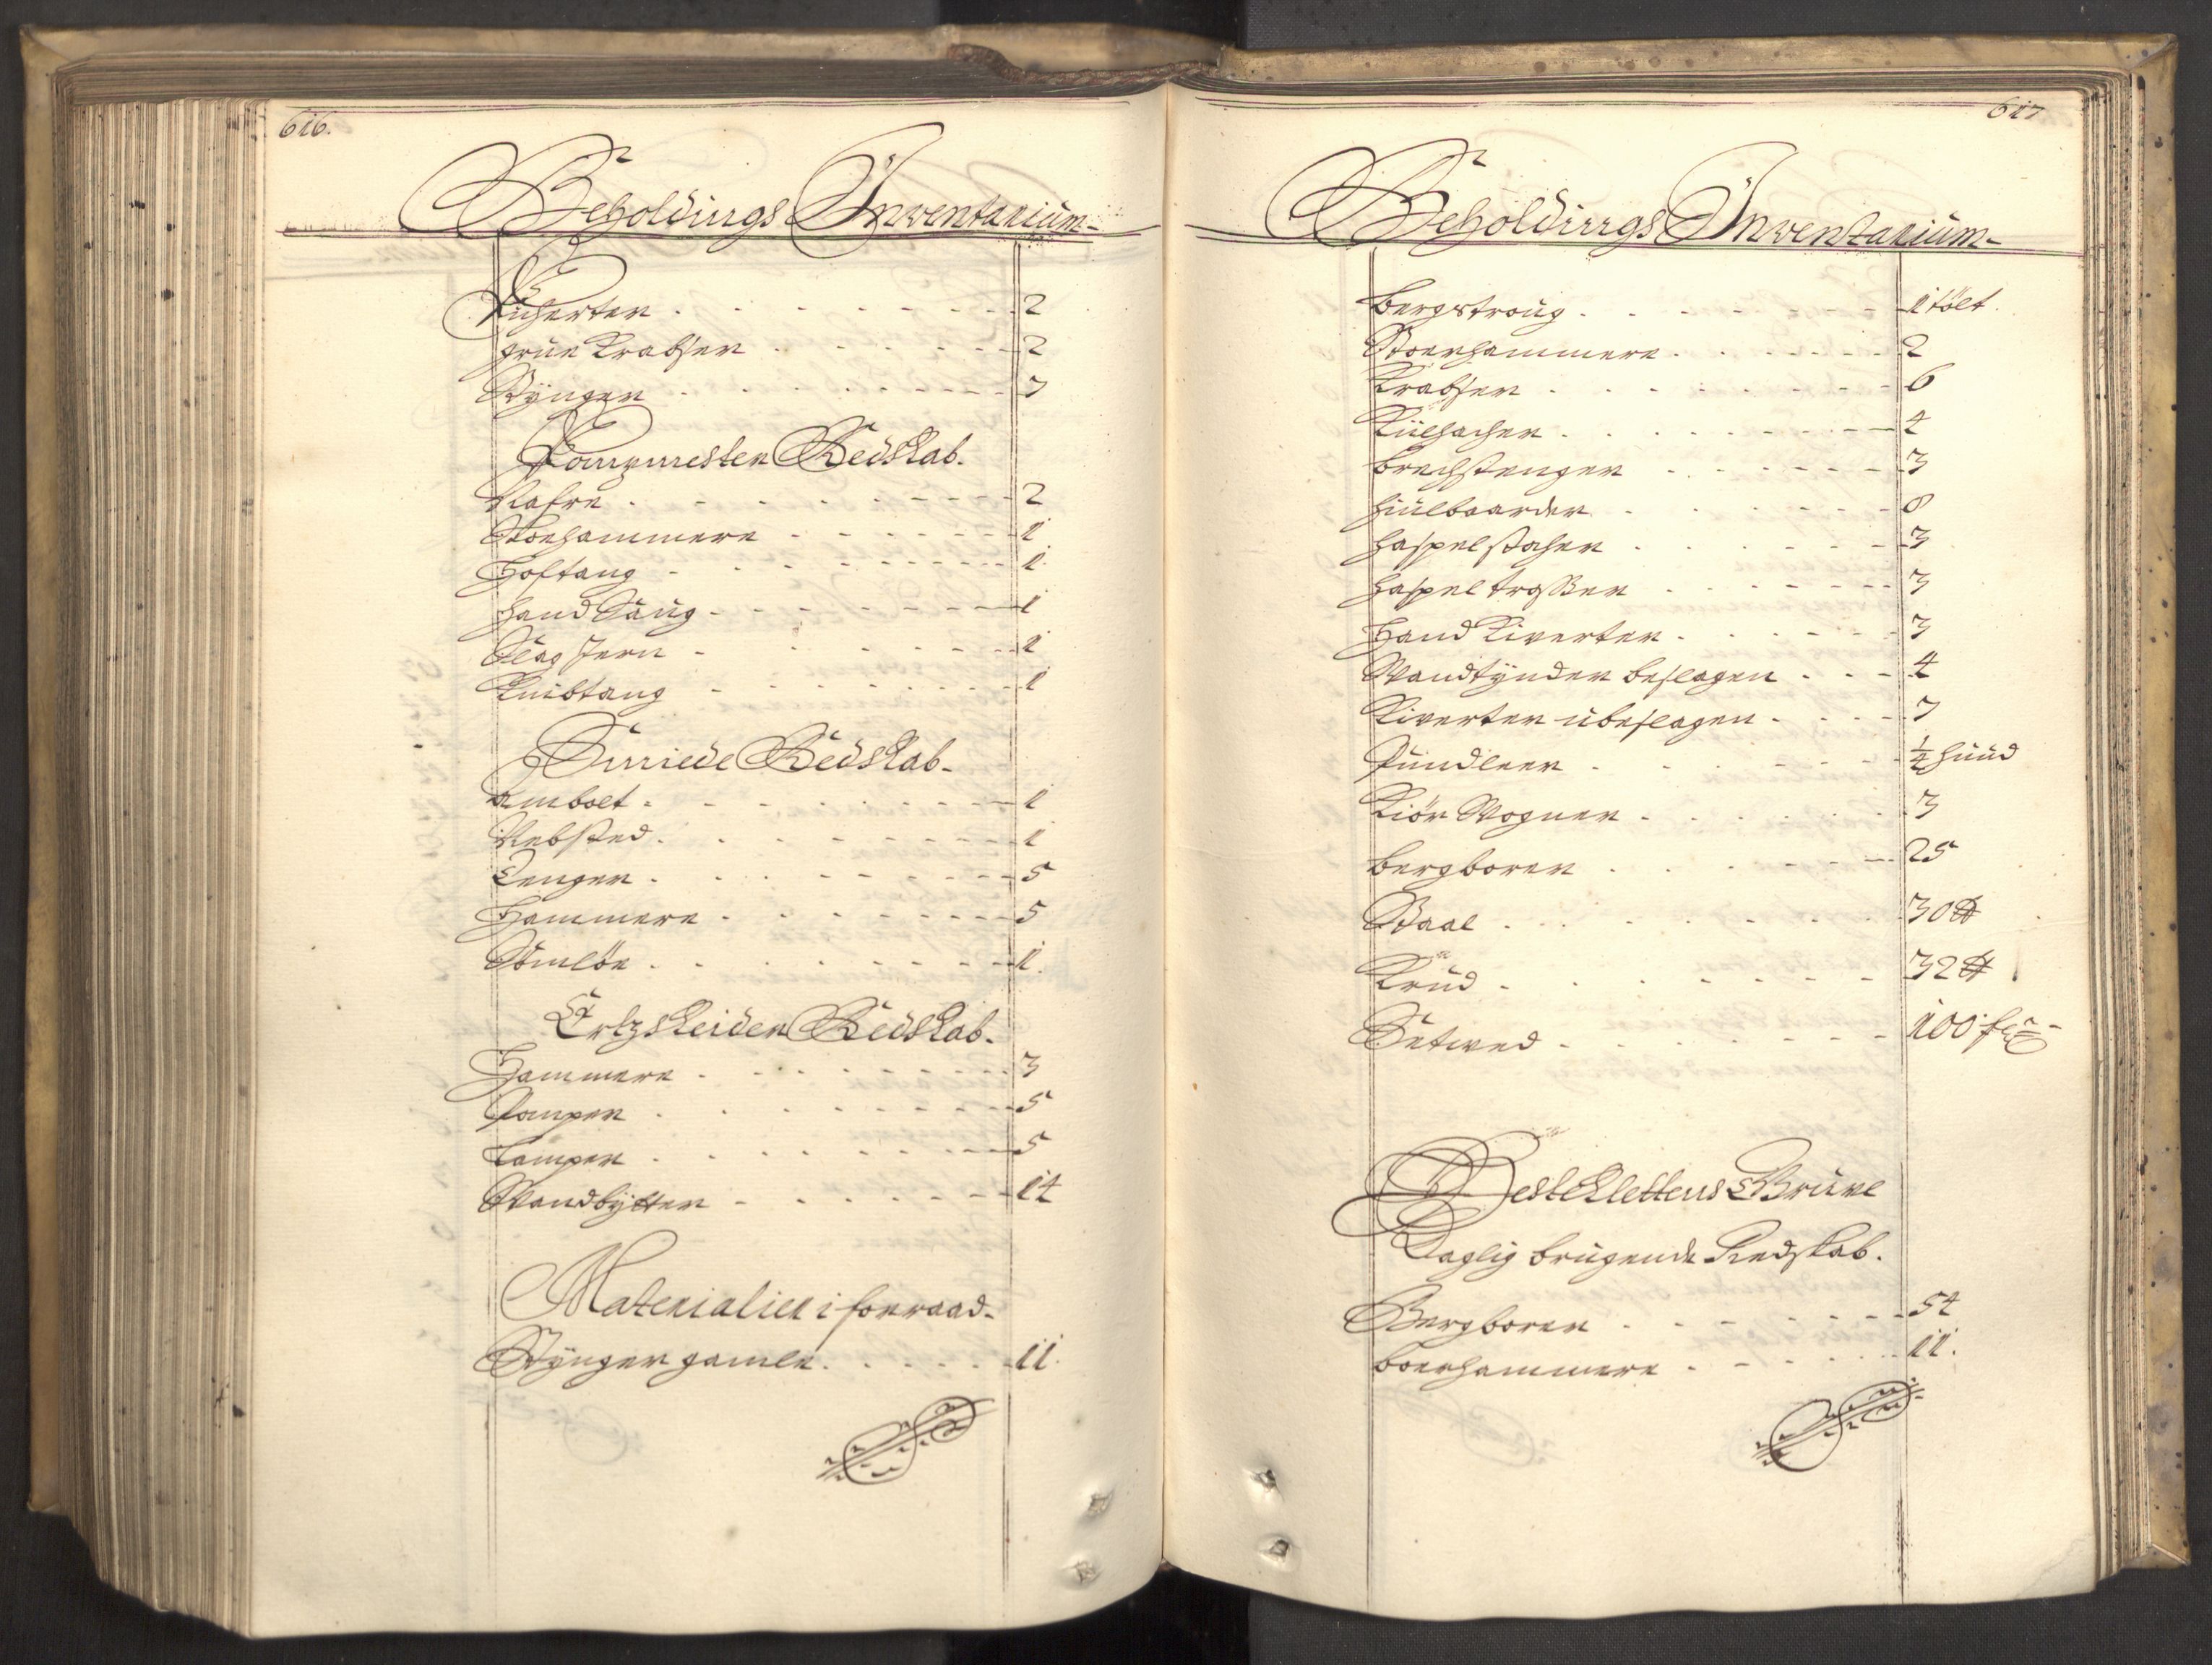 616.
Beholdings Inventarium-
Kiherter 2
grue Krabser 2
Stÿnger 7
Pompmester Redskab.
Nafre 2
Storhammere 1
Hoftang 1.
Hand Saug 1
Slag Jern 1
Knibtang 1
Smiede Redskab.
Ambolt 1
Nebsted 1
Tenger 5
Hammere 5
Sömlöe 1.
Ertzskeider Redskab.
Hammere 3
Pamper 5
Lamper 5
Wandbÿtter 14
Materialier i forraad.
Stÿnger gamle 11.
617
Beholdings Inventarium-
Bergstroug 1 tölt.
Boerhammere 2
Krabser 6
Kiilhacher 4
Brechstenger 3
Hiülbaarder 8
Haspel stocher 3
Haspel trosser 3
Hand Kiverter 3
Wandtÿnder beslagen 4
Kiverter übeslagen 7
Pundleer ¼ Huud
Kiör Wogner 3
Bergborer 25
Staal 30 ℔
Krüd 32 ℔
Setwed 100 f
Hestklettens Grüve
Daglig brügende Redskab.
Bergborer 54
Boerhammere 11.